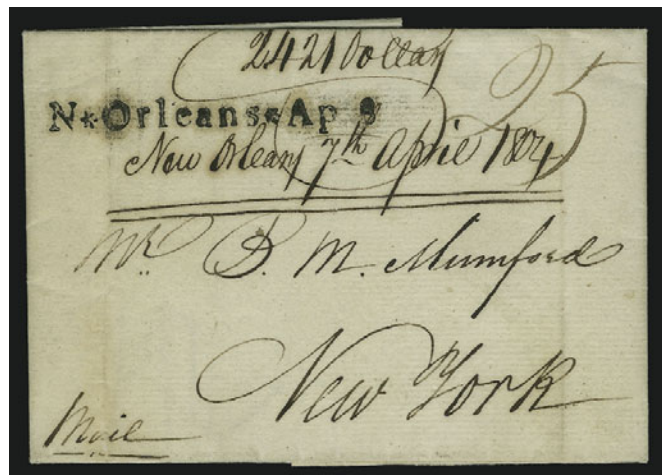 2421 Dollars
25
N*Orleans*Ap 9
New Orleans 7th April 1804
Mr. B. M. Mumford
New York
Mail